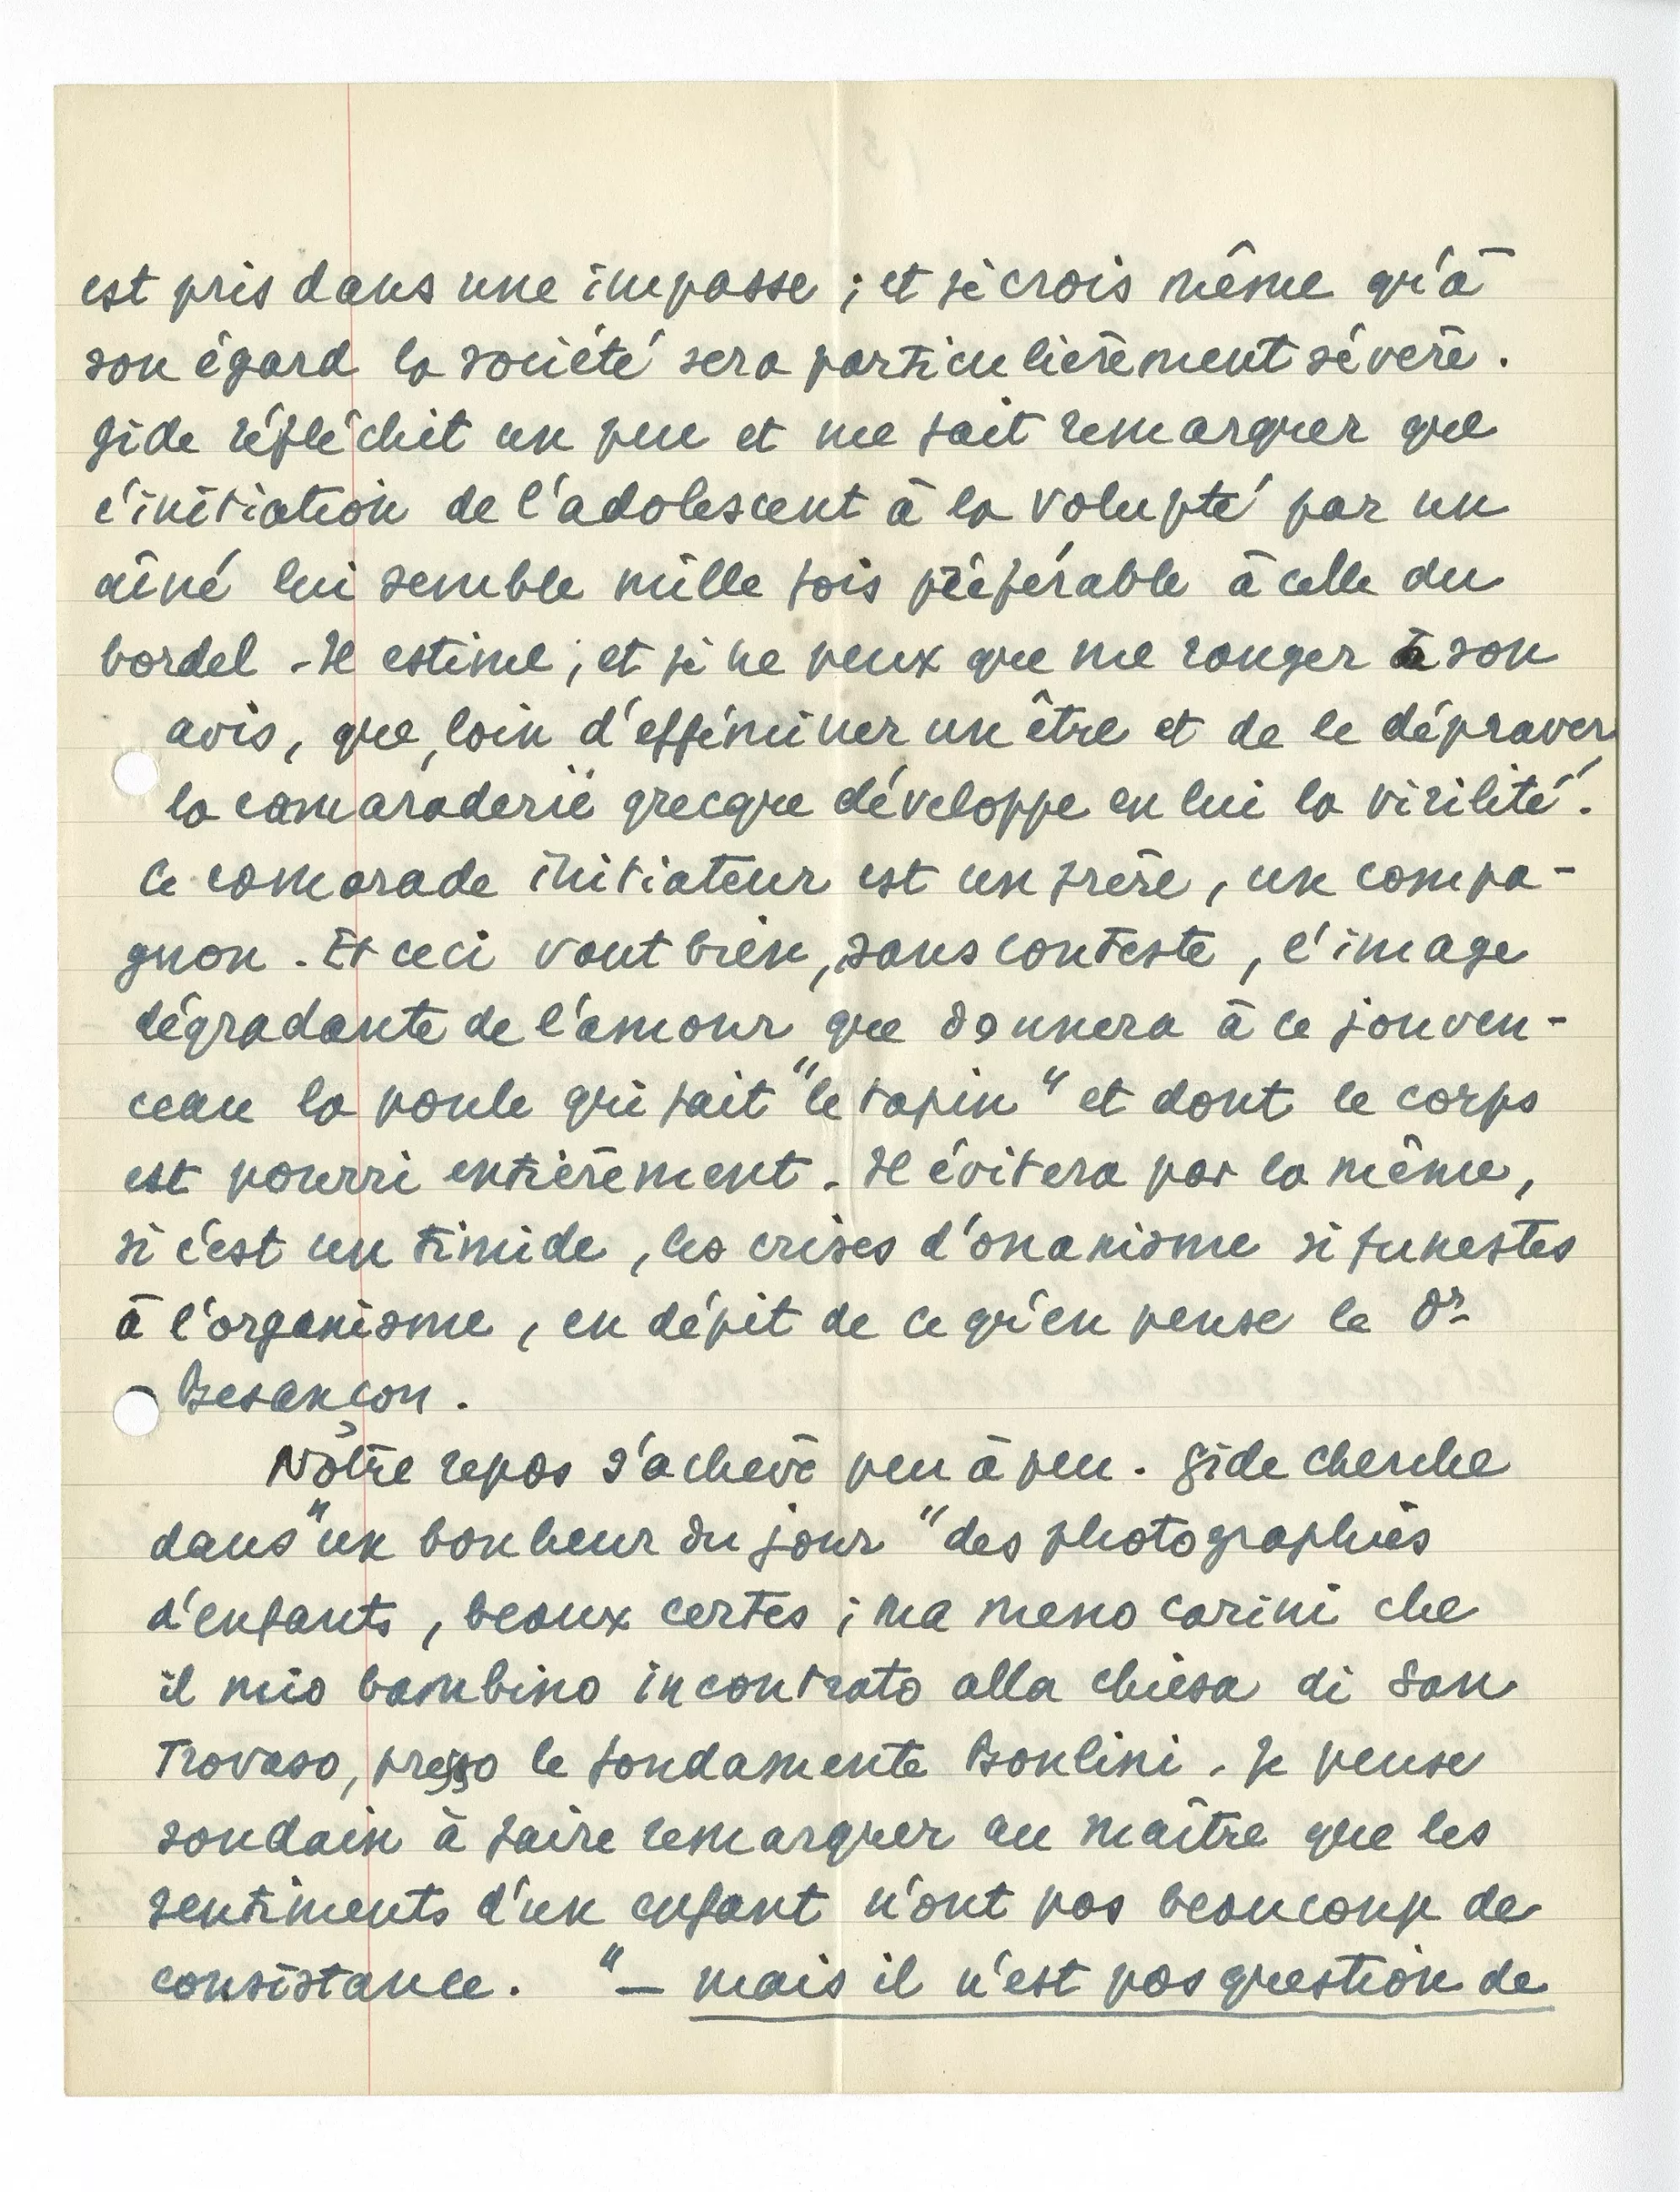 est pris dans une impasse ; et je crois même qu'à
son égard la société sera particulièrement sévère.
Gide réfléchit un peu et me fait remarquer que
l'initiation de l'adolescent à la volupté par un
aîné lui semble mille fois préférable à celle du
bordel - Il estime, et je ne peux que me ranger à son
avis, que, loin d'efféminer un être et de le dépraver
la camaraderie grecque développe en lui la virilité.
Ce camarade initiateur est un frère, un compa-
gnon. Et ceci vaut bien, sans conteste, l'image
dégradante de l'amour que donnera à ce jouven-
ceau la poule qui fait "le tapin" et dont le corps
est pourri entièrement. Il évitera par la même,
si c'est un timide, les crises d'onanisme si funestes
à l'organisme, en dépit de ce qu'en pense le Dr
Besançon.
Nôtre repos s'achève peu à peu. Gide cherche
dans "un bonheur du jour" des photographies
d'enfants, beaux certes ; ma meno carini che
il mio bambino incontrato alla chiesa di San
Trovaso, presso le fondamente Bonlini. Je pense
soudain à faire remarquer au maître que les
sentiments d'un enfant n'ont pas beaucoup de
consistance. "- mais il n'est pas question de